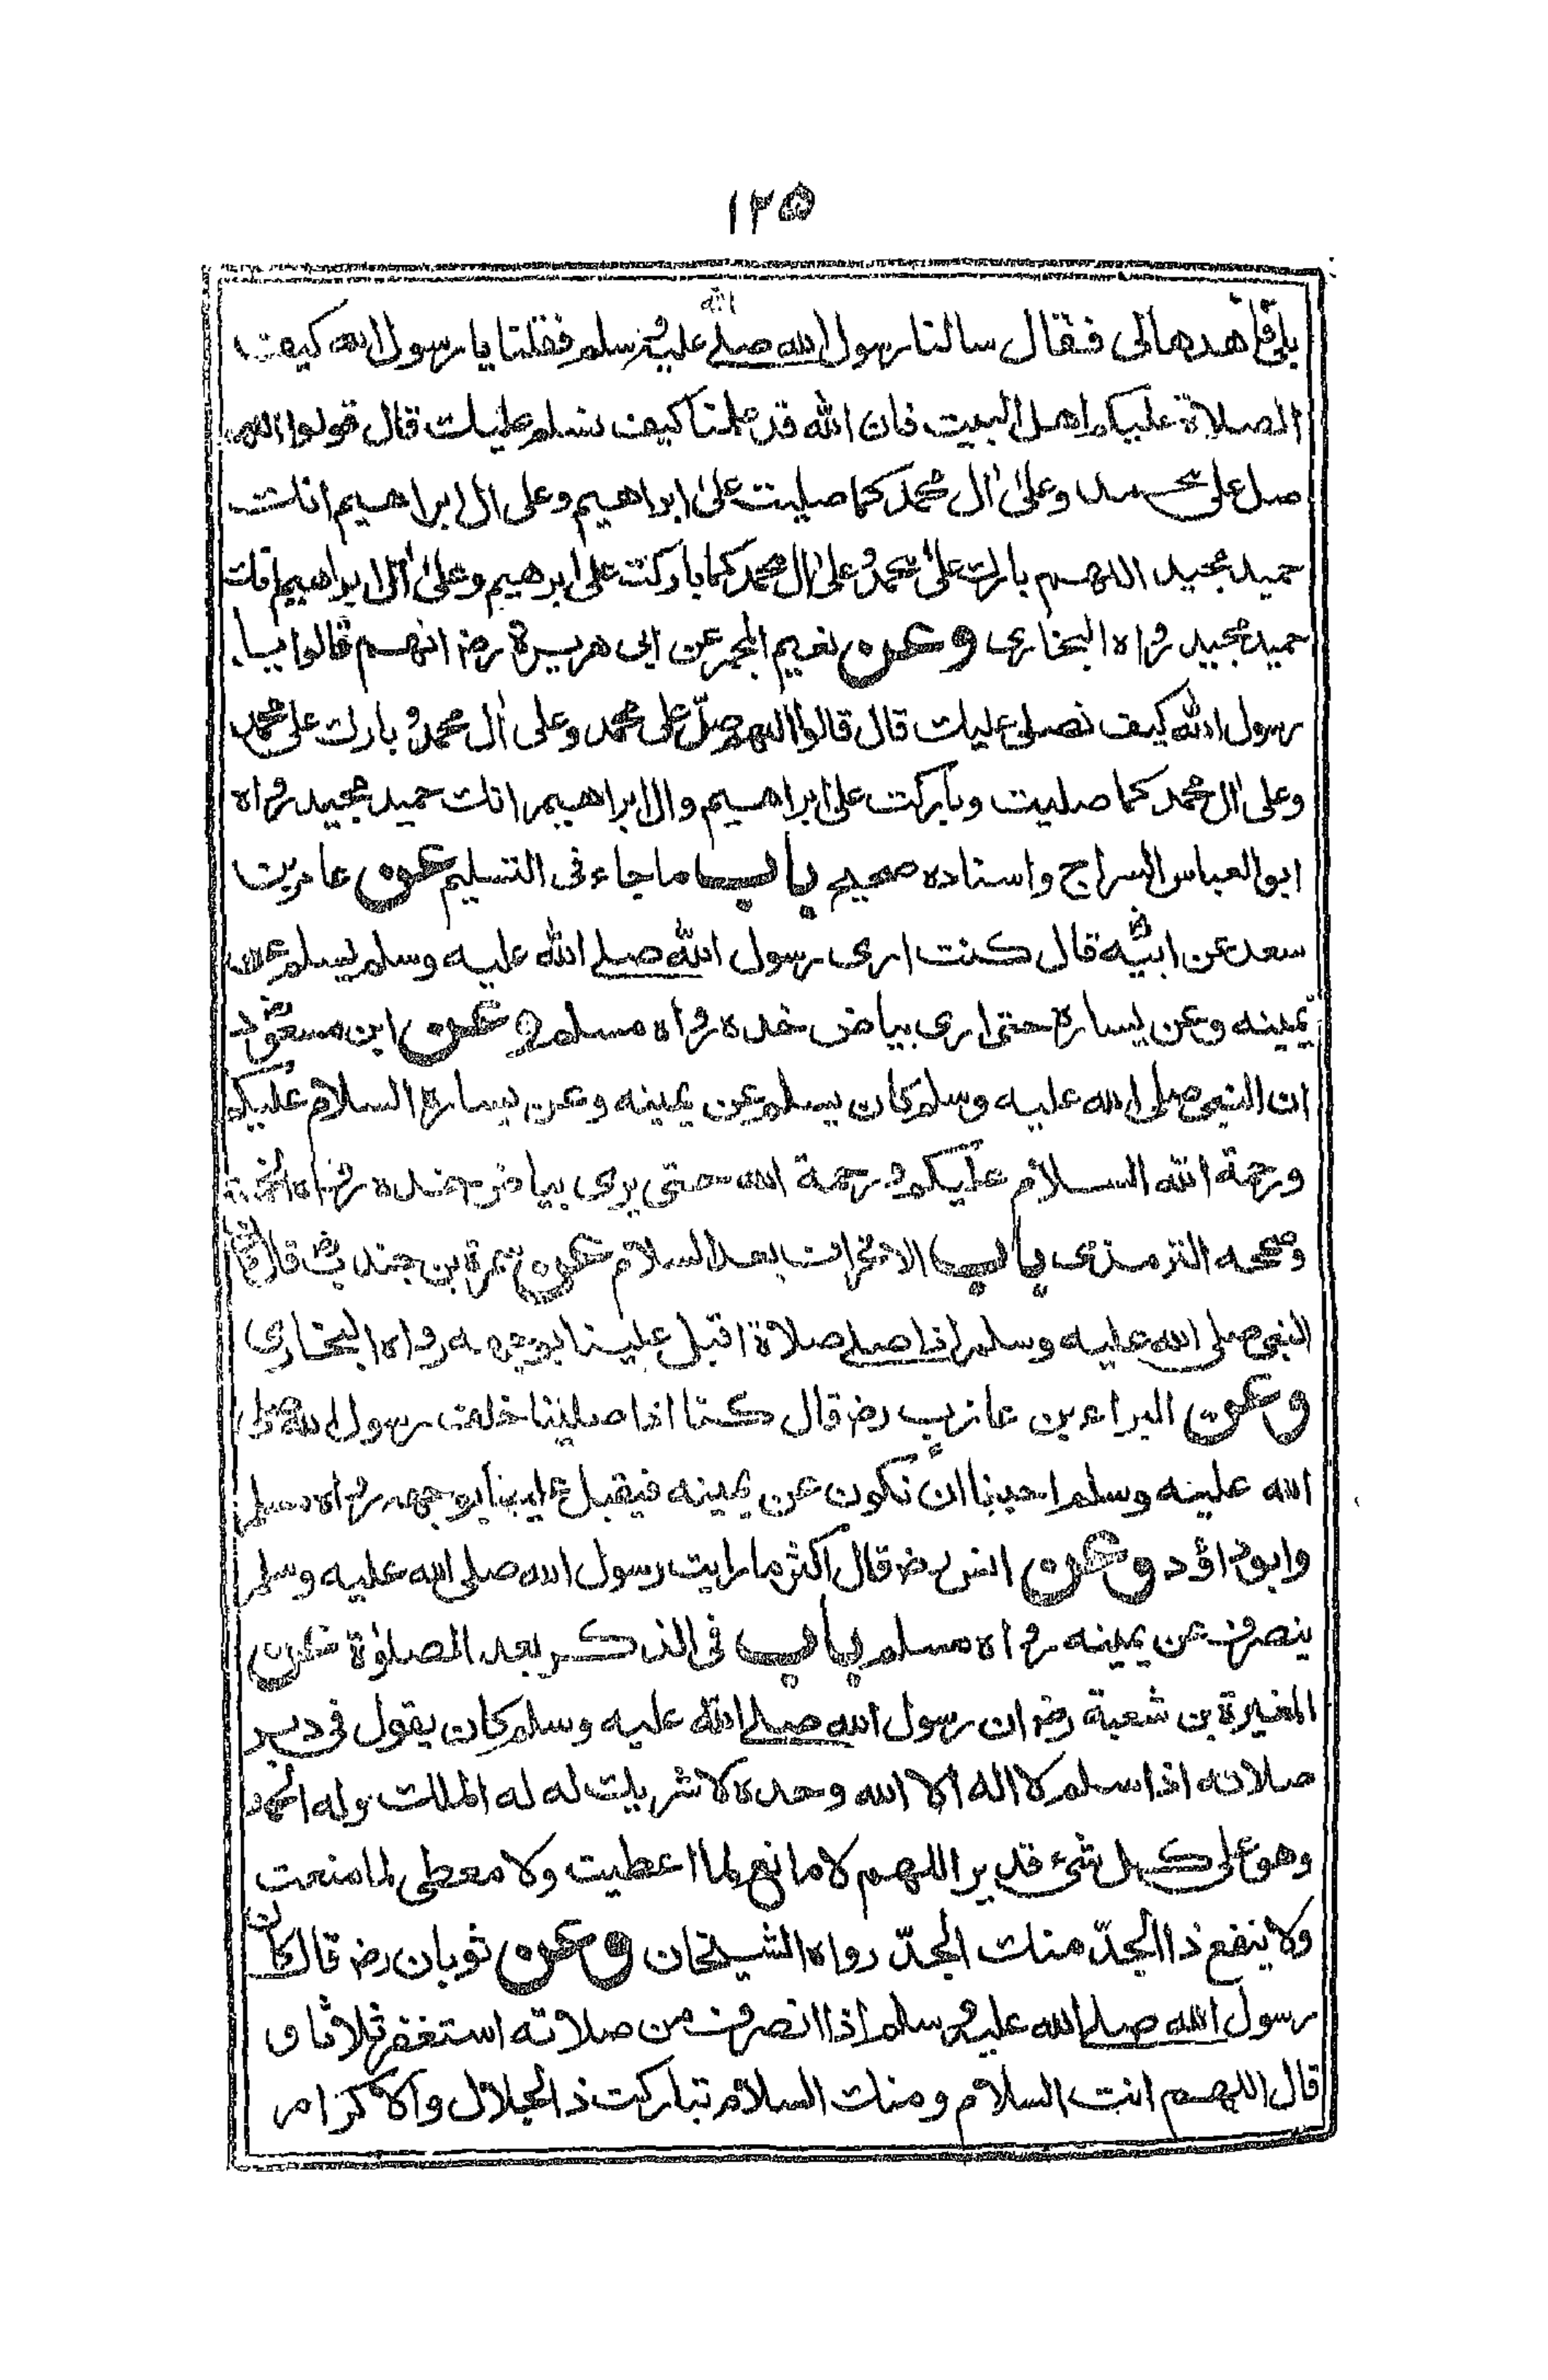 ١٢٥
بلى فاهدها لى فقال سالنا رسول الله صلے الله عليه وسلم فقلنا يا رسول الله كيف
الصلاة عليكم اهل البيت فان الله قد علمنا كيف نسلم عليك قال قولوا اللهم
صل على محمد وعلىٰ اٰل محمد كما صليت علىٰ ابراهيم وعلى ال ابراهيم انك
حميد مجيد اللهم بارك علىٰ محمد وعلىٰ اٰل محمد كما باركت علىٰ ابرهيم وعلىٰ اٰل ابراهيم انك
حميد مجيد رواه البخارى وعن نعيم المجمر عن ابى هريرة رض انهم قالوا يا
رسول الله كيف نصلى عليك قال قالوا اللهم صلّ على محمد وعلى اٰل محمد وبارك على محمد
وعلى اٰل محمد كما صليت وباركت علىٰ ابراهيم وال ابراهيم انك حميد مجيد رواه
ابو العباس السراج واسناده صحيح باب ما جاء فى التسليم عن عامر بن
سعد عن ابيه رض قال كنت ارى رسول الله صلے الله عليه وسلم يسلم عن
يمينه وعن يساره حتى ارى بياض خده رواه مسلم وعن ابن مسعود رض
ان النبى صلى الله عليه وسلم كان يسلم عن يمينه وعن يساره السلام عليكم
ورحمة الله السلام عليكم ورحمة الله حتى يرى بياض خده رواه الخمسة
وصححه الترمذى باب الانحراف بعد السلام عن سمرة بن جندب رض قال كان
النبى صلى الله عليه وسلم اذا صلے صلاة اقبل علينا بوجهه رواه البخارى
وعن البراء بن عازب رض قال كنا اذا صلينا خلف رسول الله صلى
الله عليه وسلم احببنا ان نكون عن يمينه فيقبل علينا بوجهه رواه مسلم
وابو داؤد وعن انس رض قال اكثر ما رايت رسول الله صلى الله عليه وسلم
ينصرف عن يمينه رواه مسلم باب فى الذكر بعد الصلوٰة عن
المغيرة بن شعبة رض ان رسول الله صلے الله عليه وسلم كان يقول فى دبر
صلاته اذا سلم لا اله الا الله وحده لا شريك له له الملك وله الحمد
وهو على كل شئ قدير اللهم لا مانع لما اعطيت ولا معطى لما منعت
ولا ينفع ذا الجدّ منك الجدّ رواه الشيخان وعن ثوبان رض قال كان
رسول الله صلے الله عليه وسلم اذا انصرف من صلاته استغفر ثلاثا و
قال اللهم انت السلام ومنك السلام تباركت ذا الجلال والاكرام